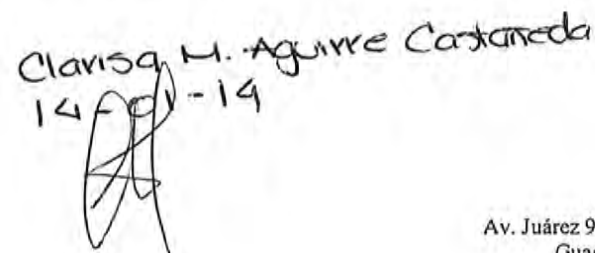 Clarisa M. Aguirre Castañeda
14-01-19
Av. Juárez 9
Gua